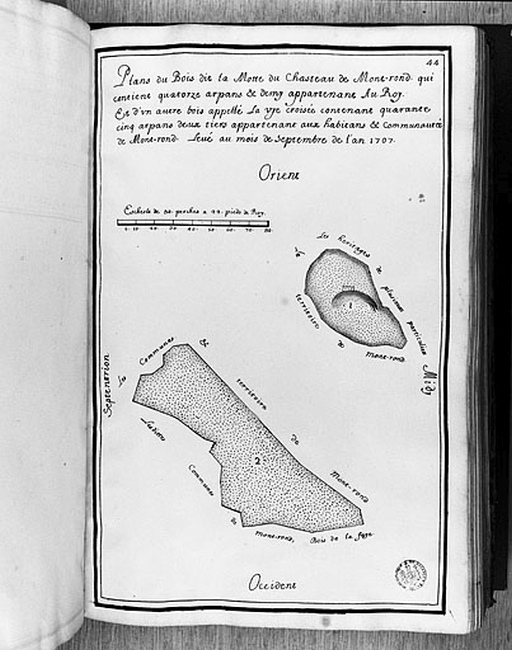 44
Plans du Bois dit la Motte du Chasteau de Mont-rond. qui
contient quatorze arpans & demy appartenant Au Roy.
Et d'vn autre bois appellé La vye croisée contenant quarante
cinq arpans deux tiers appartenant aux habitans & Communauté
de Mont-rond Levé au mois de Septembre de l'an 1707.
Orient
Eschelle de 80. perches a 22. pieds de Roy.
Les heritages de plusieurs particuliers
et
1
territoire de Mont-rond
Midy
Septentrion
Les Communes &
territoire de Mont-rond
2
Communes de Mont-rond,
Bois de la faye
Occident